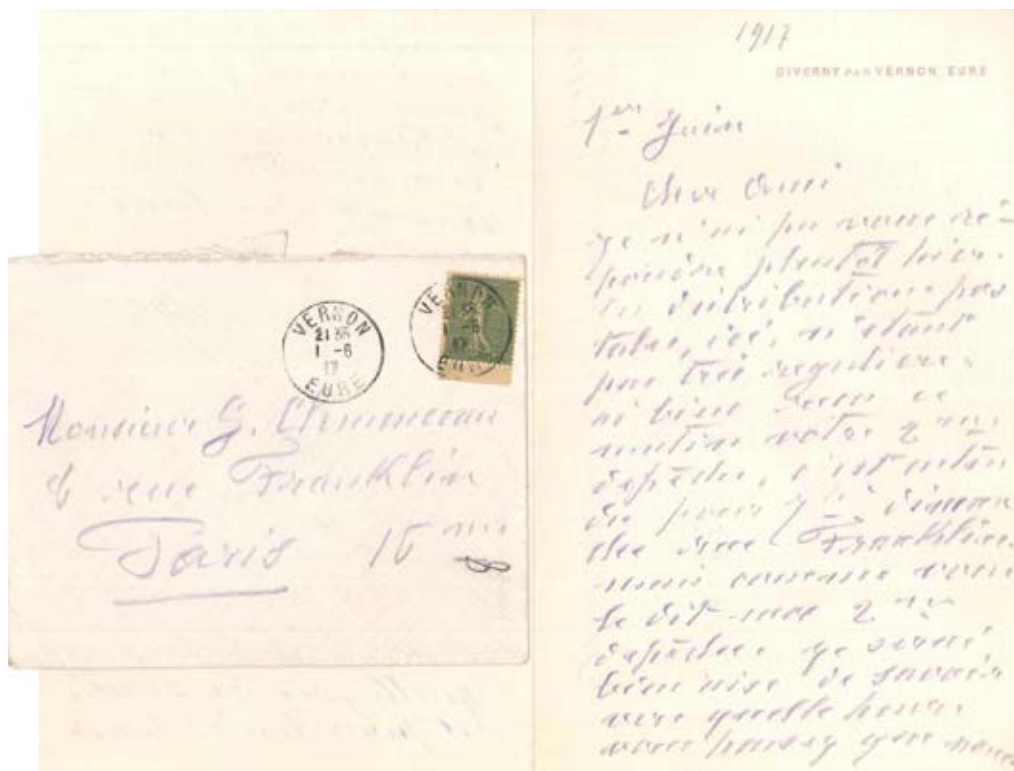 VERNON
21 35
1 - 6
17
EURE
VERNON
1 - 6
17
EURE
Monsieur G. Clemenceau
8 rue Franklin
Paris 16 me
1917
GIVERNY PAR VERNON EURE
1er Juin
Cher Ami
je n'ai pu vous ré-
pondre plutôt hier.
distributions pos
tales, ici, n'étant
pas très régulière.
ai bien reçu ce
matin votre 2 me
dépêche, c'est enten
du pour diman
che rue Franklin
mais comme vous
le dit 2 me
dépêche je serai
bien aise de savoir
vers quelle heure
vous pensez que nous